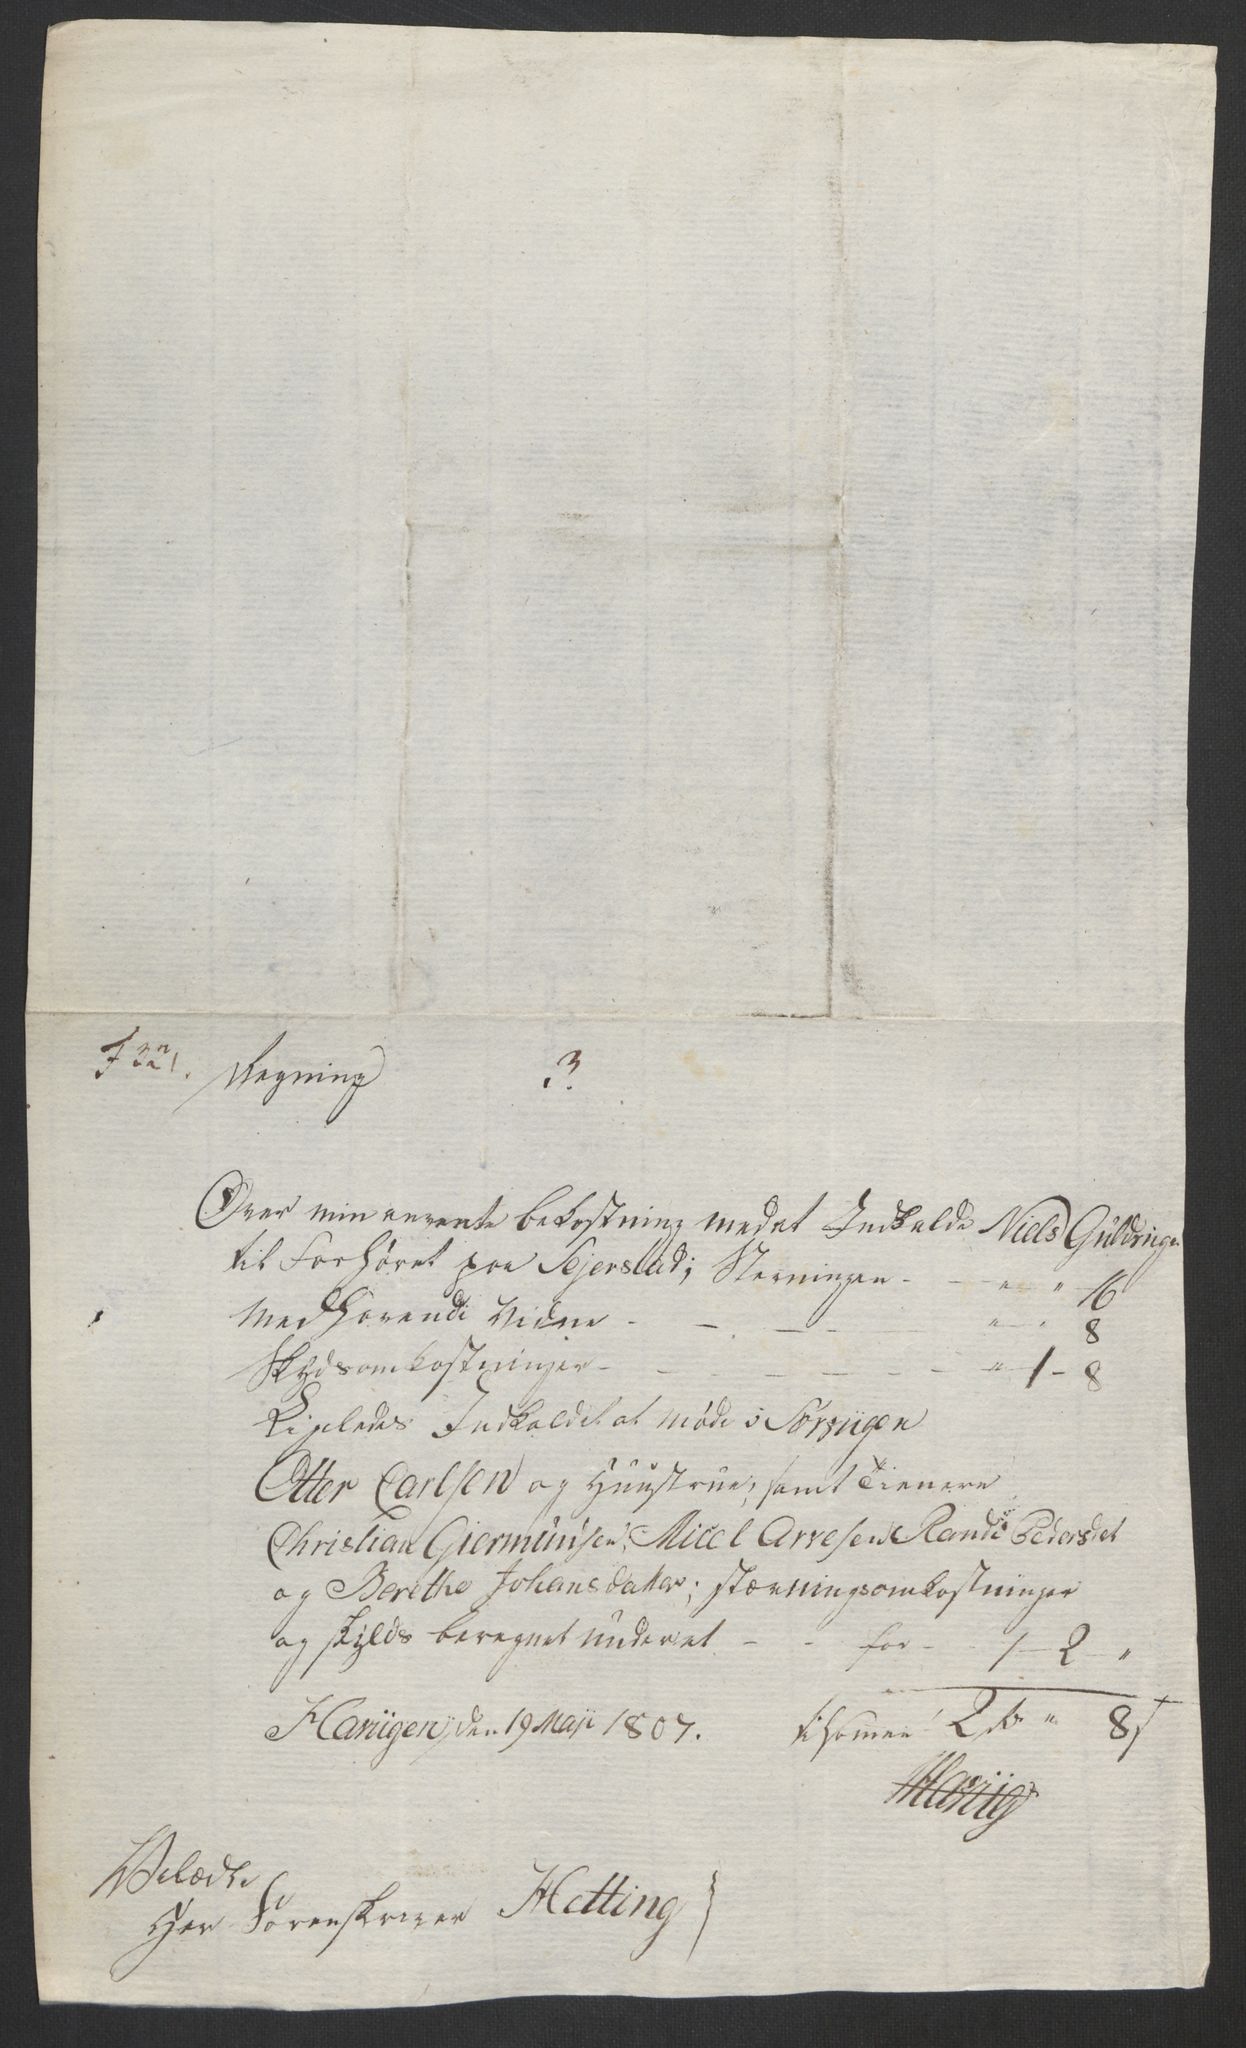 Regning 3
Over min anvente bekostning med at Indkalde Niels Guldvigen
til Forhøret paa Sejerstad; Stevningen - - " " 16
Medhavende Vidne - - - - " " 8
Skydsomkostninger - - - - " 1 - 8
Ligeledes Indkaldet at møde i Sørvigen
Otter Carlsen og Huustrue; samt Tienere
Christian Giermunsen, Micel Arvesen Randi Pedersdet
og Berethe Johansdatter; Stævningsomkostninger
og skyds beregnet under et - - for - 1 - 2 "
Haviigen den 19 Maji 1807. tilsamen 2 " 8
Havig
Velædle
Her Sorenskriver Hetting